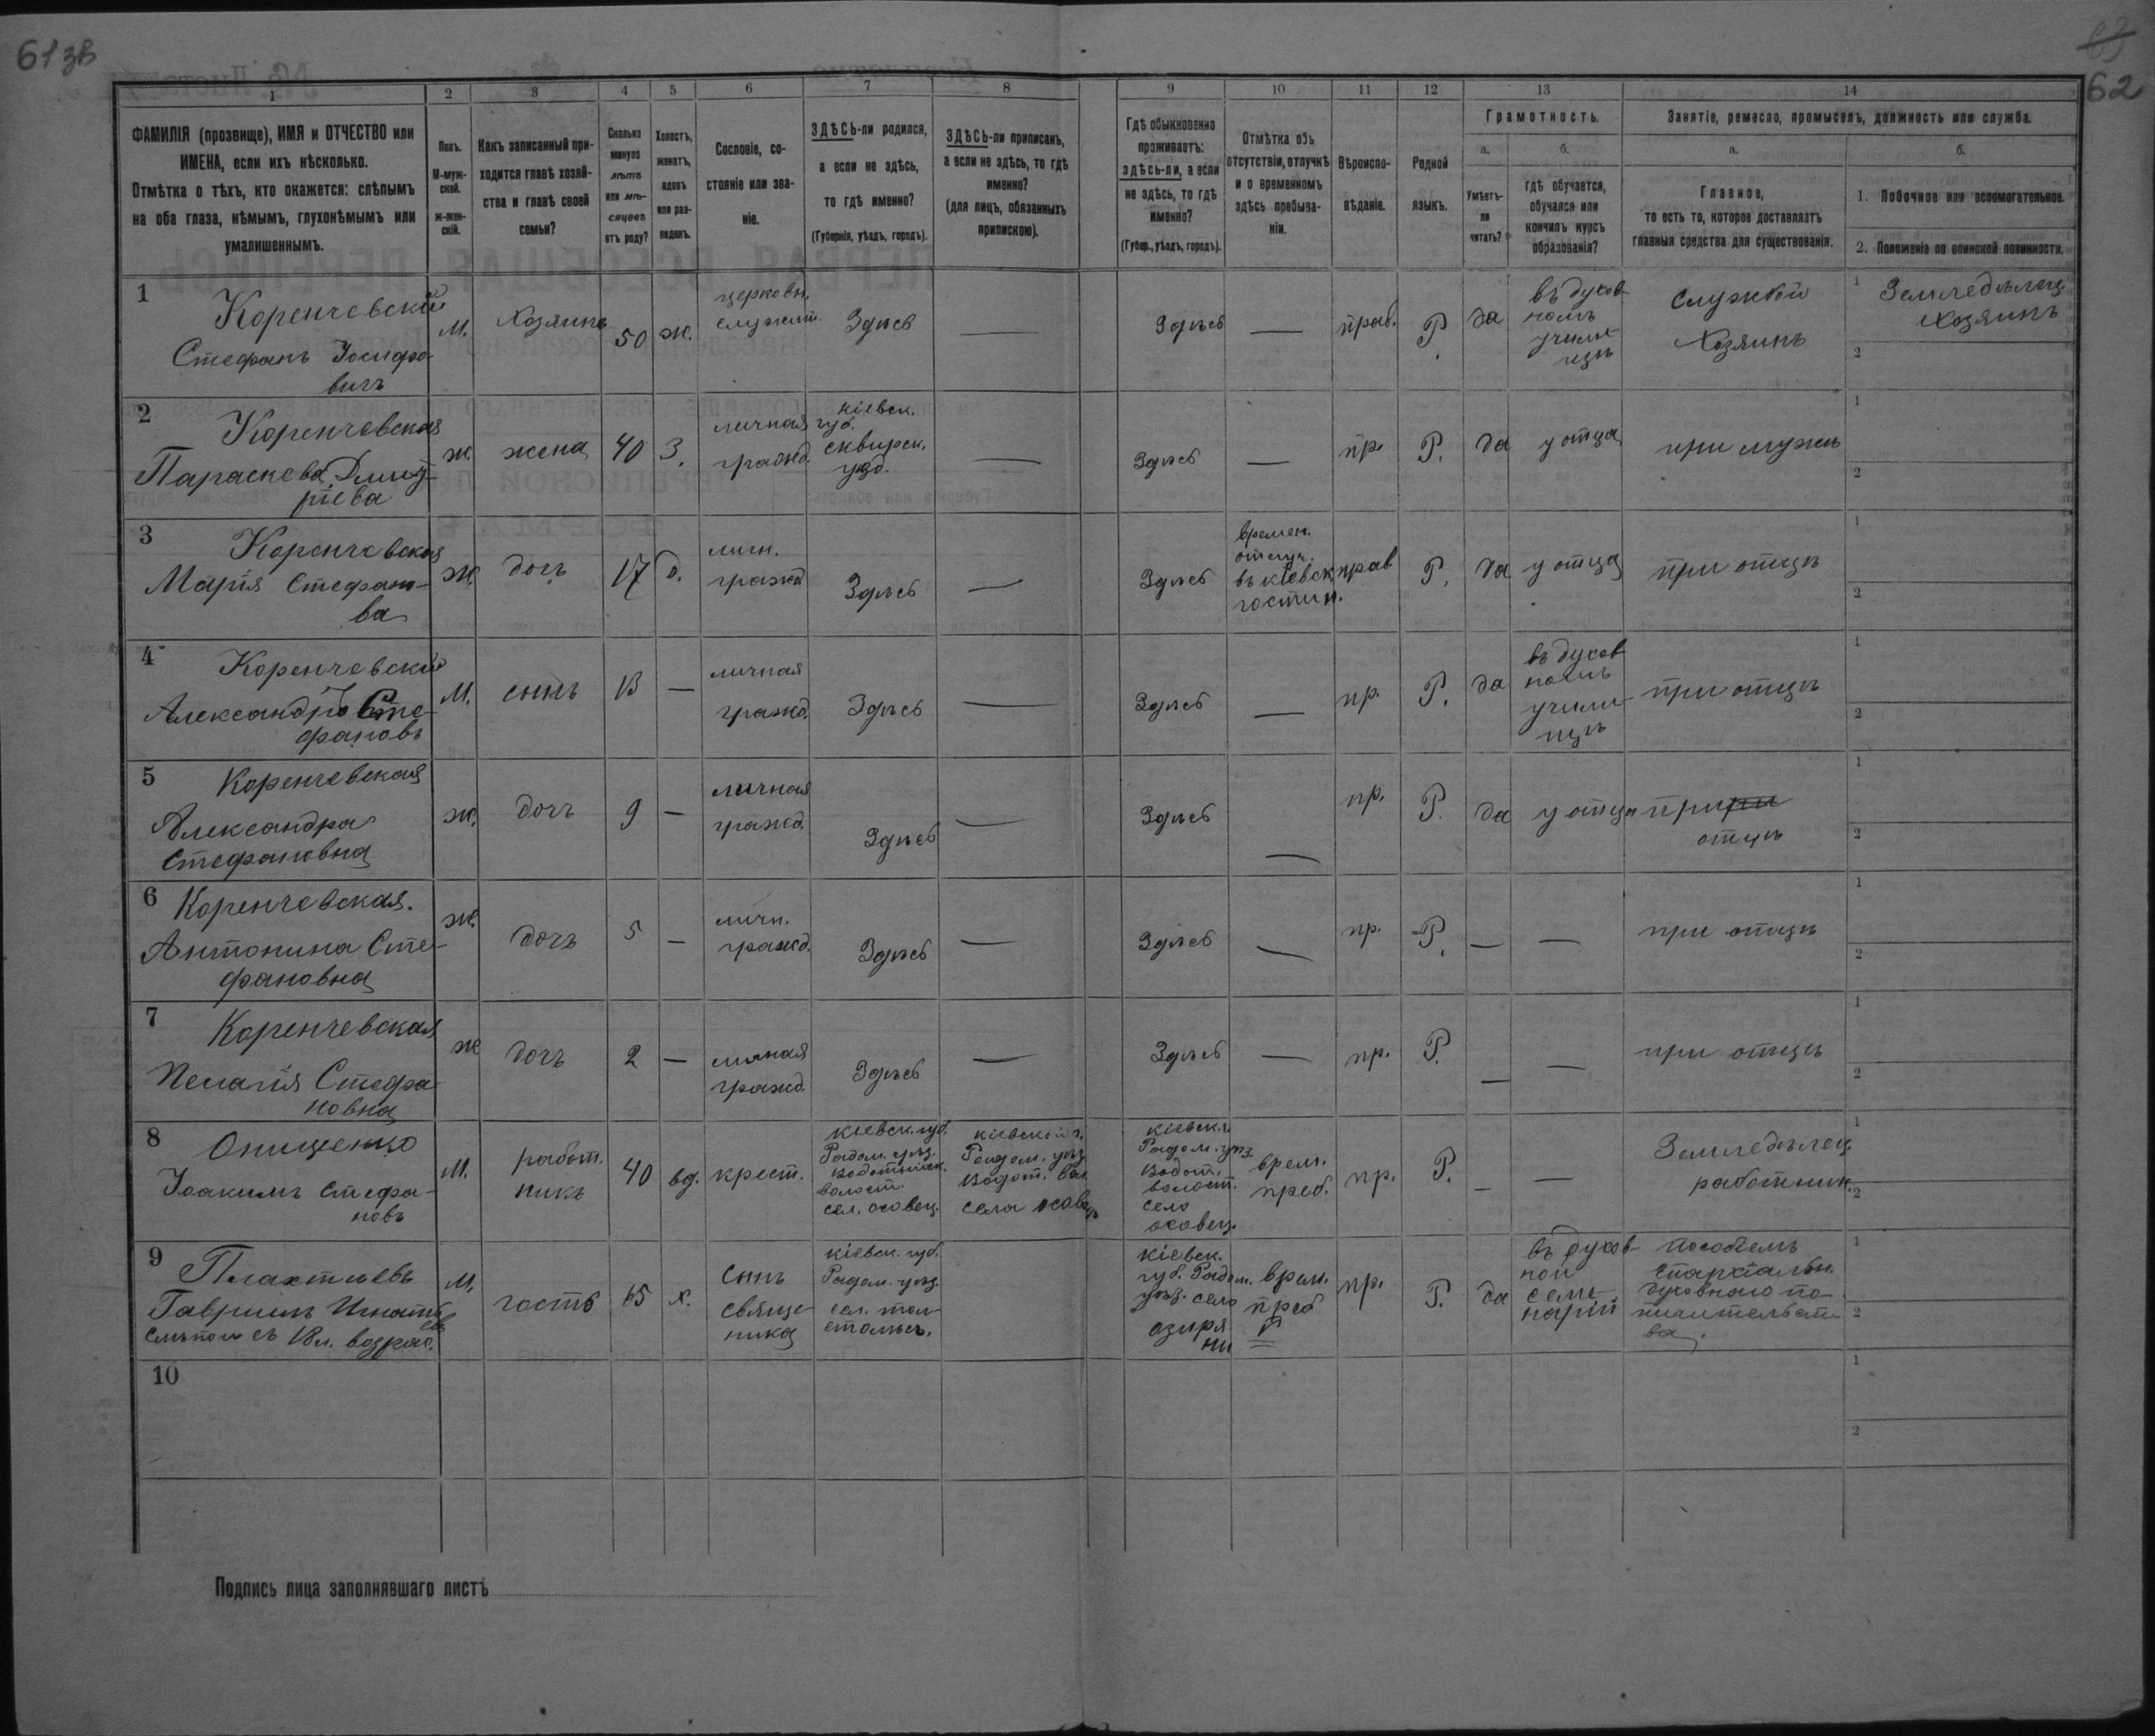 61 зв
62
1 2 3 4 5 6 7 8 9 10 11 12 13 14
ФАМИЛІЯ (прозвище), ИМЯ и ОТЧЕСТВО или
ИМЕНА, если ихъ нѣсколько.
Отмѣтка о тѣхъ, кто окажется: слѣпымъ
на оба глаза, нѣмымъ, глухонѣмымъ или
умалишеннымъ.
Полъ.
М-муж-
ской.
ж-жен-
скій.
Какъ записанный при-
ходится главѣ хозяй-
ства и главѣ своей
семьи?
Сколько
минуло
лѣтъ
или мѣ-
сяцевъ
отъ роду?
Холостъ,
женатъ,
вдовъ
или раз-
веденъ.
Сословіе, со-
стояніе или зва-
ніе.
ЗДѢСЬ-ли родился,
а если не здѣсь,
то гдѣ именно?
(Губернія, уѣздъ, городъ).
ЗДѢСЬ-ли приписанъ,
а если не здѣсь, то гдѣ
именно?
(для лицъ, обязанныхъ
припискою).
Гдѣ обыкновенно
проживаетъ:
здѣсь-ли, а если
не здѣсь, то гдѣ
именно?
(Губер., уѣздъ, городъ).
Отмѣтка объ
отсутствіи, отлучкѣ
и о временномъ
здѣсь пребыва-
ніи.
Вѣроиспо-
вѣданіе.
Родной
языкъ.
Грамотность.
а.
Умѣетъ-
ли
читать?
б.
гдѣ обучается,
обучался или
кончилъ курсъ
образованія?
Занятіе, ремесло, промыселъ, должность или служба.
а.
Главное,
то есть то, которое доставляетъ
главныя средства для существованія.
б.
1. Побочное или вспомогательное.
2. Положеніе по воинской повинности.
1
Коренчевскій
Стефанъ Іосифо-
вичъ
М.
Хозяинъ
50
ж.
церковн.
служит.
Здѣсь
—
Здѣсь
—
прав.
Р.
да
въ духов-
номъ
учили-
щѣ
Службой
Хозяинъ
1
Земледѣлец
Хозяинъ
2
2
Коренчевская
Параскева Дмит-
ріева
ж.
жена
40
З.
личная
гражд.
кіевск.
губ.
сквирск.
узд.
—
Здѣсь
—
пр.
Р.
да
у отца
при мужѣ
1
2
3
Коренчевская
Марія Стефано-
ва
Ж.
дочъ
17
д.
личн.
гражд
Здѣсь
—
Здѣсь
времен.
отлуч.
въ кіевск
гостин.
прав
Р.
да
у отца
при отцѣ
1
2
4
Коренчевскій
Александръ Сте-
фановъ
М.
сынъ
13
—
личная
гражд.
Здѣсь
—
Здѣсь
—
пр.
Р.
да
въ духов-
номъ
учили-
щѣ
при отцѣ
1
2
5
Коренчевская
Александра
Стефановна
ж.
дочъ
9
—
личная
гражд.
Здѣсь
—
Здѣсь
—
пр.
Р.
да
у отца
при
отцѣ
1
2
6
Коренчевская.
Антонина Сте-
фановна
ж.
дочъ
5
—
личн.
гражд.
Здѣсь
—
Здѣсь
—
пр.
Р.
—
—
при отцѣ
1
2
7
Коренчевская
Пелагія Стефа-
новна
ж
дочъ
2
—
личная
гражд.
Здѣсь
—
Здѣсь
—
пр.
Р.
—
—
при отцѣ
1
2
8
Онищенко
Іоакимъ Стефа-
новъ
М.
работ.
никъ
40
вд.
крест.
кіевск. губ.
Радом. уѣз.
волост.
сел. осовец.
кіевской г.
Радом. уѣз
Водот. вол
села осовец
кіевск.
Радом. уѣз.
Водот.
волост.
село
осовец.
врем.
преб.
пр.
Р.
—
—
Земледѣлец.
работник.
1
2
9
Плахтіевъ
Гавріилъ Игнатіе
въ
слѣпой съ 18л. возрас.
М.
гость
65
х.
Сынъ
Священ-
ника
кіевск. губ.
Радом. уѣз.
сел.
кіевск.
губ. Радом.
уѣз. село
озиря
ни
врем.
преб
пр.
Р.
да
въ духов-
ной
семи-
наріи
пособіемъ
Епархіальн.
духовнаго по-
печительст
ва.
1
2
10
1
2
Подпись лица заполнявшаго листъ